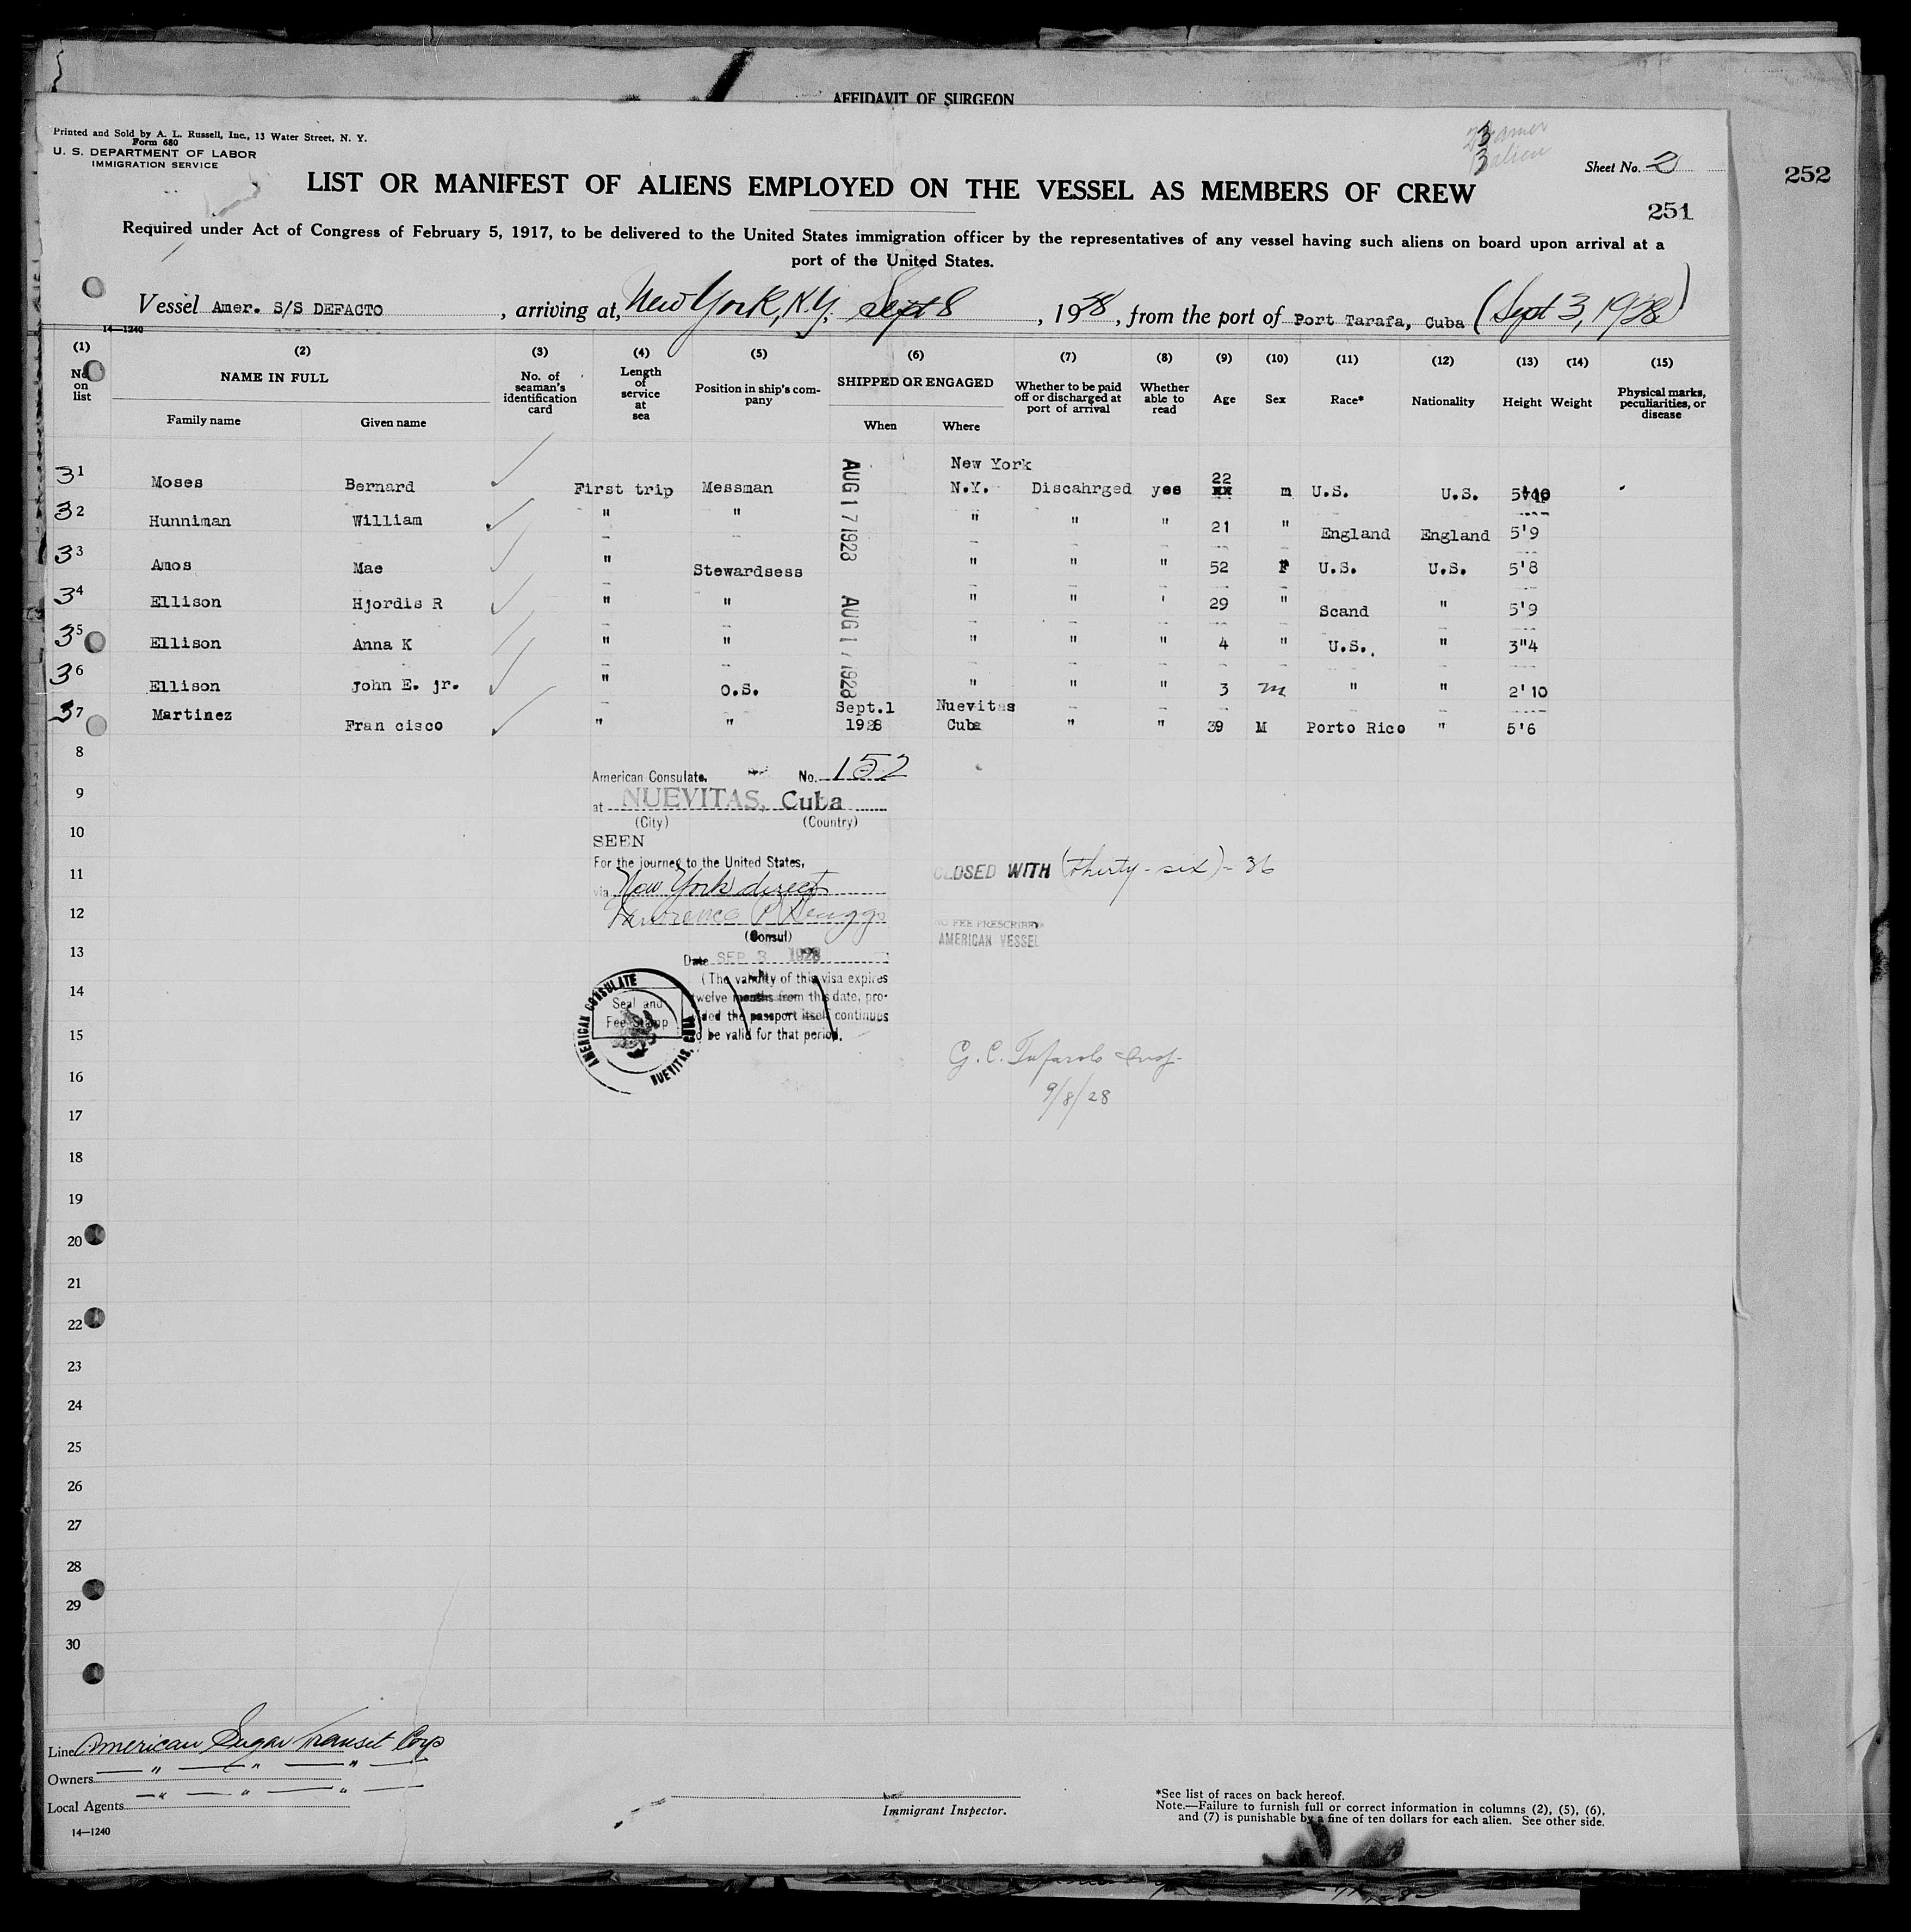 AFFIDAVIT OF SURGEON
Printed and Sold by A. L. Russell, Inc., 13 Water Street, N. Y.
Form 680
U. S. DEPARTMENT OF LABOR
IMMIGRATION SERVICE
3 amer
3 alien
Sheet No. 2
252
LIST OR MANIFEST OF ALIENS EMPLOYED ON THE VESSEL AS MEMBERS OF CREW
251
Required under Act of Congress of February 5, 1917, to be delivered to the United States immigration officer by the representatives of any vessel having such aliens on board upon arrival at a
port of the United States.
Vessel Amer. S/S DEFACTO, arriving at, New York, N.Y. Sept 8, 1928, from the port of Port Tarafa, Cuba (Sept 3, 1928)
14—1240
(1) (2) (3) (4) (5) (6) (7) (8) (9) (10) (11) (12) (13) (14) (15)
No. on list NAME IN FULL No. of seaman's identification card Length of service at sea Position in ship's company SHIPPED OR ENGAGED Whether to be paid off or discharged at port of arrival Whether able to read Age Sex Race* Nationality Height Weight Physical marks, peculiarities, or disease
Family name Given name When Where
31 Moses Bernard First trip Messman AUG 17 1928 New York N.Y. Discahrged yes 22 m U.S. U.S. 5'10
32 Hunniman William " " " " " 21 " England England 5'9
33 Amos Mae " Stewardsess " " " 52 F U.S. U.S. 5'8
34 Ellison Hjordis R " " AUG 17 1928 " " ' 29 " Scand " 5'9
35 Ellison Anna K " " " " " 4 " U.S. " 3"4
36 Ellison John E. jr. " O.S. " " " 3 m " " 2'10
37 Martinez Fran cisco " " Sept.1 1928 Nuevitas Cuba " " 39 M Porto Rico " 5'6
8
American Consulate, No. 152
9
at NUEVITAS, Cuba
(City) (Country)
10
SEEN
For the journey to the United States,
11
CLOSED WITH (thirty-six) - 36
via New York direct
12
Lawrence P. Briggs
NO FEE PRESCRIBED
AMERICAN VESSEL
(Consul)
13
Date SEP 3 1928
(The validity of this visa expires
14
twelve months from this date, pro-
vided the passport itself continues
to be valid for that period.
Seal and
Fee Stamp
AMERICAN CONSULATE
NUEVITAS, CUBA
15
16
9/8/28
17
18
19
20
21
22
23
24
25
26
27
28
29
30
Line American Sugar Transit Corp
Owners " " "
Local Agents " " "
14—1240
Immigrant Inspector.
*See list of races on back hereof.
Note.—Failure to furnish full or correct information in columns (2), (5), (6),
and (7) is punishable by a fine of ten dollars for each alien. See other side.